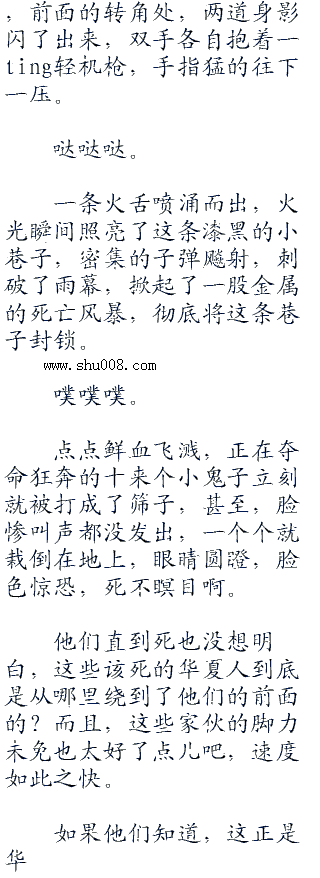 ，前面的转角处，两道身影
闪了出来，双手各自抱着一
ting轻机枪，手指猛的往下
一压。
哒哒哒。
一条火舌喷涌而出，火
光瞬间照亮了这条漆黑的小
巷子，密集的子弹飚射，刺
破了雨幕，掀起了一股金属
的死亡风暴，彻底将这条巷
子封锁。
www.shu008.com
噗噗噗。
点点鲜血飞溅，正在夺
命狂奔的十来个小鬼子立刻
就被打成了筛子，甚至，脸
惨叫声都没发出，一个个就
栽倒在地上，眼睛圆瞪，脸
色惊恐，死不瞑目啊。
他们直到死也没想明
白，这些该死的华夏人到底
是从哪里绕到了他们的前面
的？而且，这些家伙的脚力
未免也太好了点儿吧，速度
如此之快。
如果他们知道，这正是
华